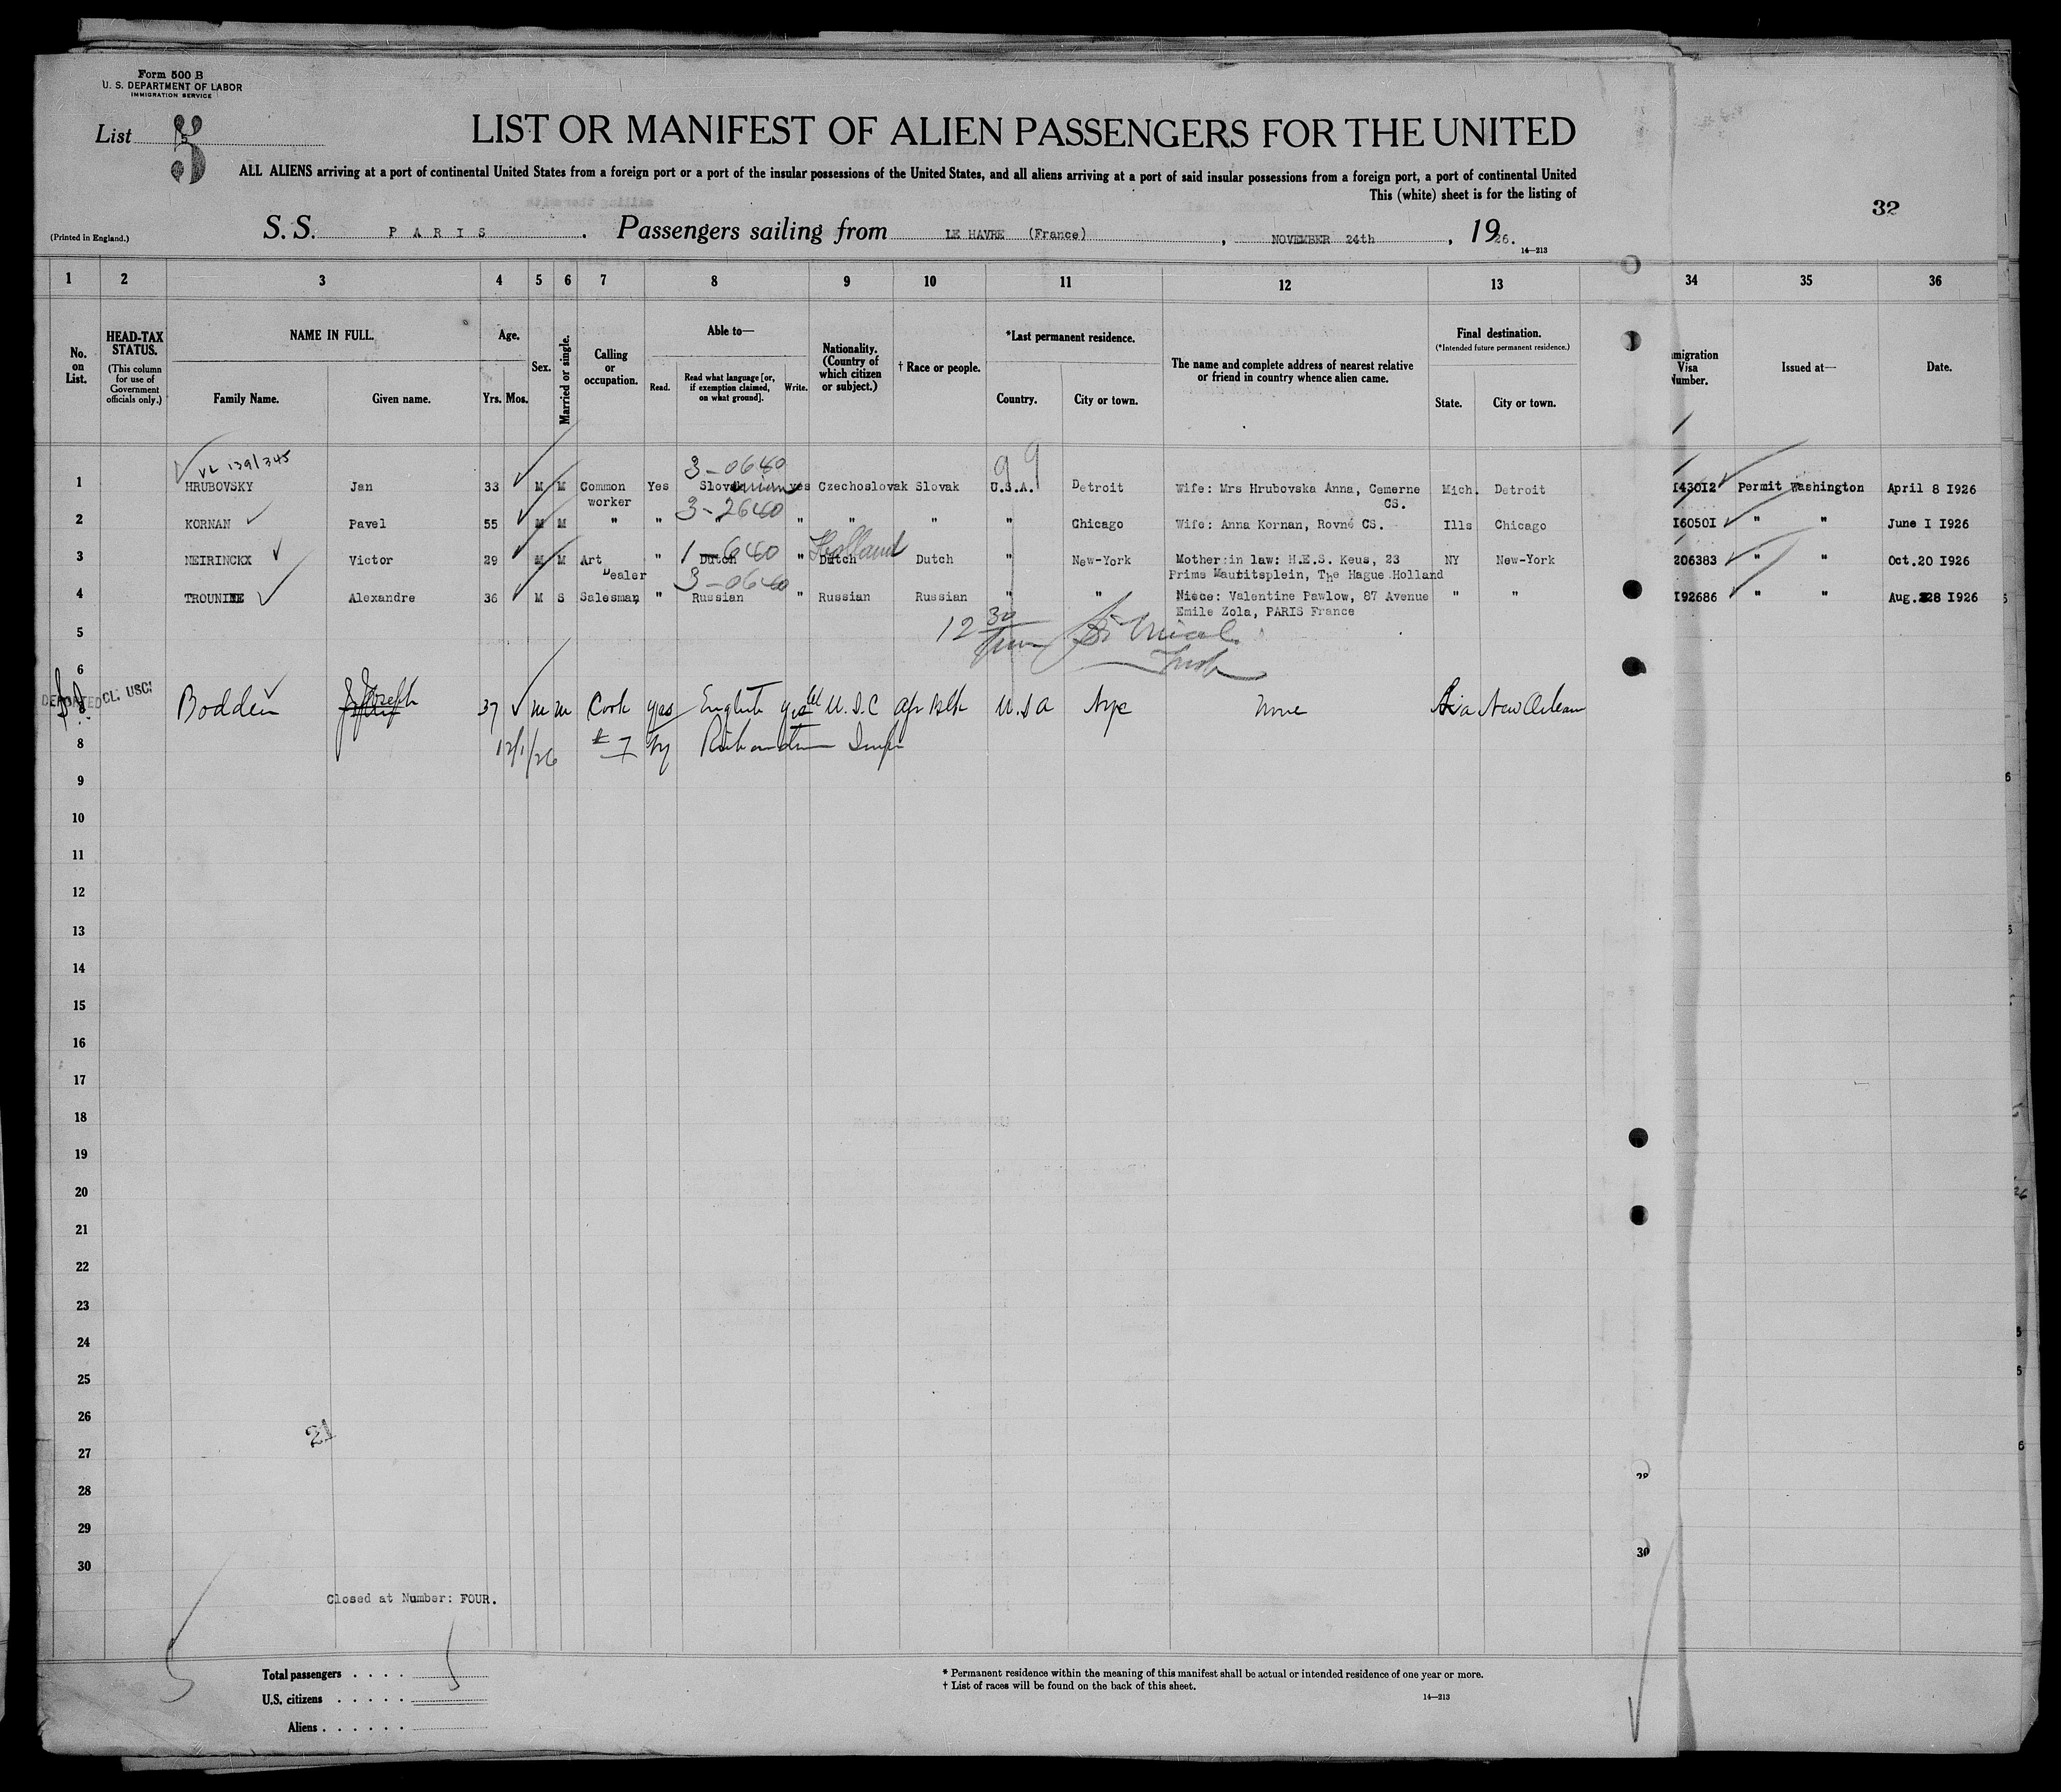 Form 500 B
U. S. DEPARTMENT OF LABOR
IMMIGRATION SERVICE
List 5
LIST OR MANIFEST OF ALIEN PASSENGERS FOR THE UNITED
ALL ALIENS arriving at a port of continental United States from a foreign port or a port of the insular possessions of the United States, and all aliens arriving at a port of said insular possessions from a foreign port, a port of continental United
This (white) sheet is for the listing of
32
(Printed in England.)
S. S. PARIS . Passengers sailing from LE HAVRE (France) , NOVEMBER 24th , 1926.
14—213
1 2 3 4 5 6 7 8 9 10 11 12 13 34 35 36
No. on List.
HEAD-TAX STATUS.
(This column for use of Government officials only.)
NAME IN FULL.
Family Name. Given name.
Age.
Yrs. Mos.
Sex.
Married or single.
Calling or occupation.
Able to—
Read. Read what language [or, if exemption claimed, on what ground]. Write.
Nationality. (Country of which citizen or subject.)
† Race or people.
*Last permanent residence.
Country. City or town.
The name and complete address of nearest relative or friend in country whence alien came.
Final destination.
(*Intended future permanent residence.)
State. City or town.
migration Visa Number.
Issued at—
Date.
VL 139/345 3-0640 99
1 HRUBOVSKY Jan 33 M M Common worker Yes Slovenian yes Czechoslovak Slovak U.S.A. Detroit Wife: Mrs Hrubovska Anna, Cemerne CS. Mich. Detroit I430I2 Permit Washington April 8 I926
3-2640
2 KORNAN Pavel 55 M M " " " " " " Chicago Wife: Anna Kornan, Rovné CS. Ills Chicago I6050I " " June I I926
1-640 Holland
3 NEIRINCKX Victor 29 M M Art Dealer " Dutch " Dutch Dutch " New-York Mother in law: H.E.S. Keus, 23 NY New-York 206383 " " Oct.20 I926
Prims Mauritsplein, The Hague Holland
3-0640
4 TROUNINE Alexandre 36 M S Salesman " Russian " Russian Russian " " Niece: Valentine Pawlow, 87 Avenue " " I92686 " " Aug. 28 I926
Emile Zola, PARIS France
5 12 30
6
CL. USC:
Bodden Joseph 37 M M Cook yes English yes U.S.C Afr Blk U.S.A NYC None La New Orleans
8 12/1/26 #7 by Richardson Insp
9
10
11
12
13
14
15
16
17
18
19
20
21
22
23
24
25
26
21
27
28
29
30
30
Closed at Number: FOUR.
Total passengers . . . . 5
U.S. citizens . . . . .
Aliens . . . . . .
* Permanent residence within the meaning of this manifest shall be actual or intended residence of one year or more.
† List of races will be found on the back of this sheet.
14—213